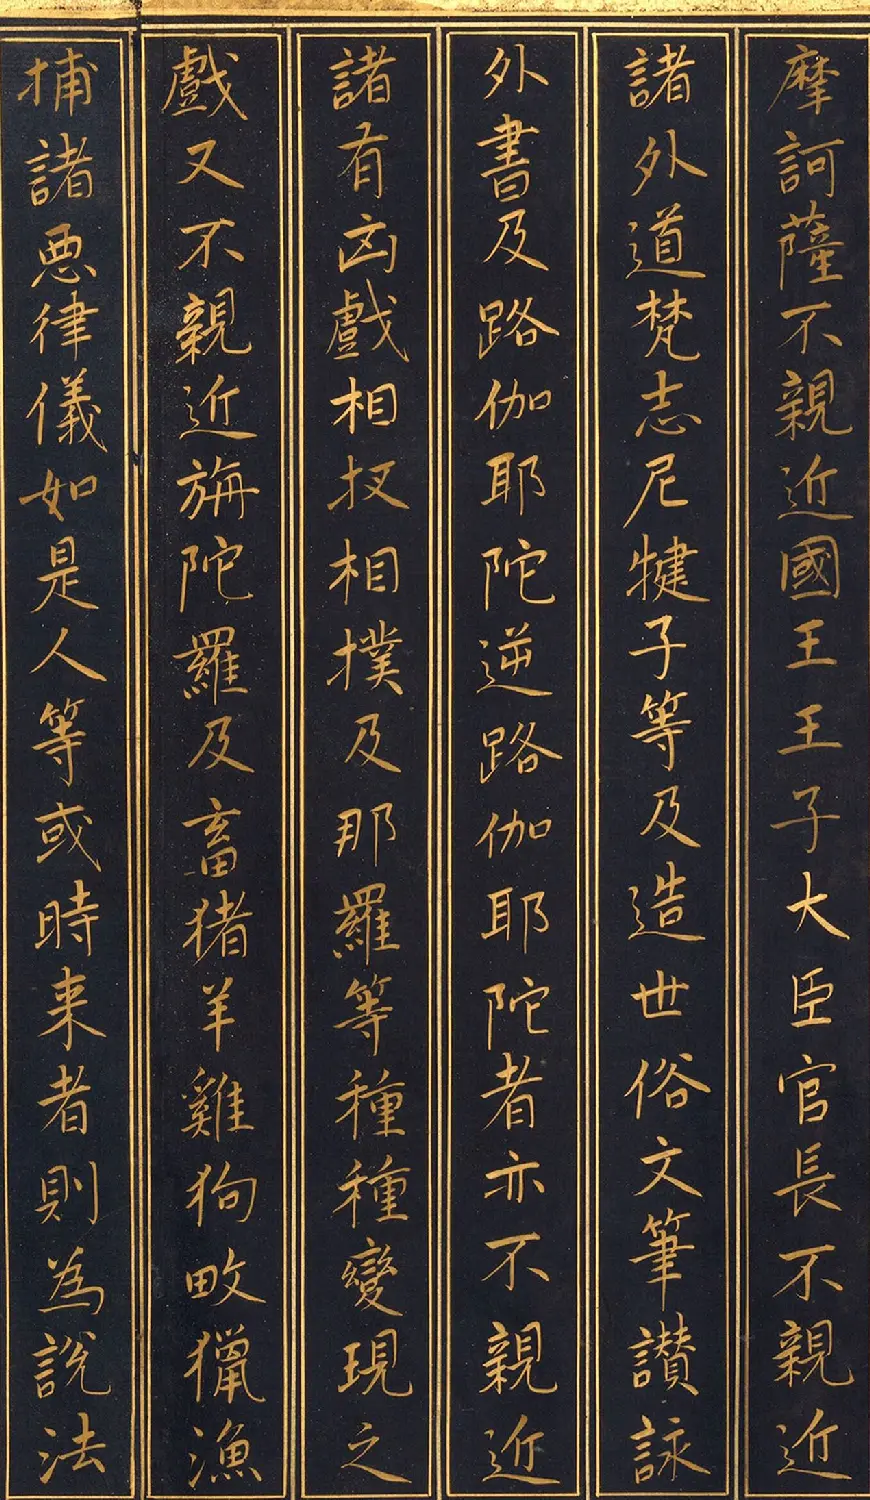 摩訶薩不親近國王王子大臣官長不親近
諸外道梵志尼揵子等及造世俗文筆讚詠
外書及路伽耶陀逆路伽耶陀者亦不親近
諸有凶戲相扠相撲及那羅等種種變現之
戲又不親近旃陀羅及畜猪羊雞狗畋獵漁
捕諸悪律儀如是人等或時来者則為說法